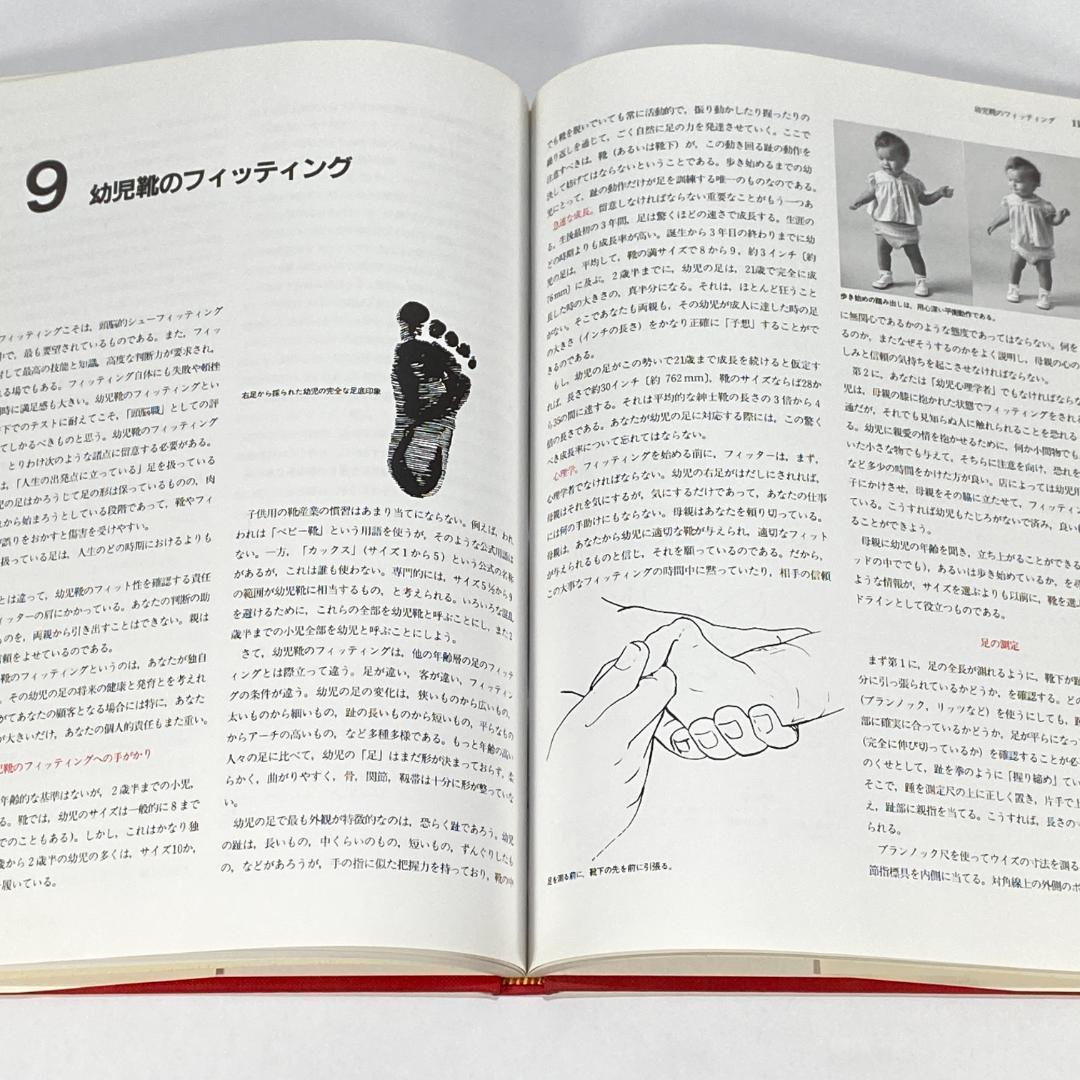 9 幼児靴のフィッティング
フィッティングこそは，頭脳的シューフィッティング
中で，最も要望されているものである。また，フィッ
して最高の技能と知識，高度な判断力が要求され，
る場でもある。フィッティング自体にも失敗や頓挫
同時に満足感も大きい。幼児靴のフィッティングとい
下でのテストに耐えてこそ，「頭脳職」としての評
てしかるべきものと思う。幼児靴のフィッティング
とりわけ次のような諸点に留意する必要がある。
は，「人生の出発点に立っている」足を扱っている
児の足はかろうじて足の形は保っているものの，肉
から始まろうとしている段階であって，靴やフィ
誤りをおかすと傷害を受けやすい。
扱っている足は，人生のどの時期におけるよりも
とは違って，幼児靴のフィット性を確認する責任
ィッターの肩にかかっている。あなたの判断の助
ものを，両親から引き出すことはできない。親は
信頼をよせているのである。
靴のフィッティングというのは，あなたが独自
，その幼児の足の将来の健康と発育とを考えれ
がてあなたの顧客となる場合には特に，あなた
が大きいだけ，あなたの個人的責任もまた重い。
児靴のフィッティングへの手がかり
年齢的な基準はないが，2歳半までの小児，
る。靴では，幼児のサイズは一般的に8まで
でのこともある)。しかし，これはかなり独
歳から2歳半の幼児の多くは，サイズ10か，
履いている。
右足から採られた幼児の完全な足底印象
子供用の靴産業の慣習はあまり当てにならない。例えば，われ
われは「ベビー靴」という用語を使うが，そのような公式用語は
ない。一方，「カックス」(サイズ1から5)という公式の名称
があるが，これは誰も使わない。専門的には，サイズ5½から9
の範囲が幼児靴に相当するもの，と考えられる。いろいろな混乱
を避けるために，これらの全部を幼児靴と呼ぶことにし，また2
歳半までの小児全部を幼児と呼ぶことにしよう。
さて，幼児靴のフィッティングは，他の年齢層の足のフィッテ
ィングとは際立って違う。足が違い，客が違い，フィッティン
グの条件が違う。幼児の足の変化は，狭いものから広いもの，
太いものから細いもの，趾の長いものから短いもの，平らなもの
からアーチの高いもの，など多種多様である。もっと年齢の高い
人々の足に比べて，幼児の「足」はまだ形が決まっておらず，柔
らかく，曲がりやすく，骨，関節，靱帯は十分に形が整っていな
い。
幼児の足で最も外観が特徴的なのは，恐らく趾であろう。幼児
の趾は，長いもの，中くらいのもの，短いもの，ずんぐりしたも
の，などがあろうが，手の指に似た把握力を持っており，靴の中
幼児靴のフィッティング
でも靴を脱いでいても常に活動的で，振り動かしたり握ったりの
繰り返しを通じて，ごく自然に足の力を発達させていく。ここで
注意すべきは，靴(あるいは靴下)が，この動き回る趾の動作を
決して妨げてはならないということである。歩き始めるまでの幼
児にとって，趾の動作だけが足を訓練する唯一のものなのである。
急速な成長。留意しなければならない重要なことがもう一つあ
る。生後最初の3年間，足は驚くほどの速さで成長する。生涯の
どの時期よりも成長率が高い。誕生から3年目の終わりまでに幼
児の足は，平均して，靴の満サイズで8から9，約3インチ〔約
76mm〕に及ぶ。2歳半までに，幼児の足は，21歳で完全に成
長した時の大きさの，真半分になる。それは，ほとんど狂うこと
がない。そこであなたも両親も，その幼児が成人に達した時の足
の大きさ(インチの長さ)をかなり正確に「予想」することがで
きるのである。
もし，幼児の足がこの勢いで21歳まで成長を続けると仮定す
れば，長さで約30インチ〔約762mm〕，靴のサイズならば28か
ら35の間に達する。それは平均的な紳士靴の長さの3倍から4
倍の長さである。あなたが幼児の足に対応する際には，この驚く
べき成長率について忘れてはならない。
心理学。フィッティングを始める前に，フィッターは，まず，
心理学者でなければならない。幼児の右足がはだしにされれば，
母親はそれを気にするが，気にするだけであって，あなたの仕事
には何の手助けにもならない。母親はあなたを頼り切っている。
母親は，あなたから幼児に適切な靴が与えられ，適切なフィット
が与えられるものと信じ，それを願っているのである。だから，
この大事なフィッティングの時間中に黙っていたり，相手の信頼
足を測る前に，靴下の先を前に引張る。
歩き始めの踏み出しは，用心深い平衡動作である。
に無関心であるかのような態度であってはならない。何を
るのか，またなぜそうするのかをよく説明し，母親の心の
しみと信頼の気持ちを起こさせなければならない。
第2に，あなたは「幼児心理学者」でもなければならな
児は，母親の膝に抱かれた状態でフィッティングをされ
通だが，それでも見知らぬ人に触れられることを恐れる
る。幼児に親愛の情を抱かせるために，何か小間物でも
いた小さな物でも与えて，そちらに注意を向け，恐れを
など多少の時間をかけた方が良い。店によっては幼児用
子にかけさせ，母親をその脇に立たせて，フィッティン
ている。こうすれば幼児もたじろがないで済み，良い
ることができよう。
母親に幼児の年齢を聞き，立ち上がることができる
ッドの中ででも)，あるいは歩き始めているか，を尋
ような情報が，サイズを選ぶよりも以前に，靴を選
ドラインとして役立つものである。
足の測定
まず第1に，足の全長が測れるように，靴下が趾
分に引っ張られているかどうか，を確認する。どの
(ブランノック，リッツなど)を使うにしても，踵
部に確実に合っているかどうか，足が平らになって
(完全に伸び切っているか)を確認することが必
のくせとして，趾を拳のように「握り締め」てい
そこで，踵を測定尺の上に正しく置き，片手で
え，趾部に親指を当てる。こうすれば，長さの
られる。
ブランノック尺を使ってウイズの寸法を測る
節指標具を内側に当てる。対角線上の外側のボ